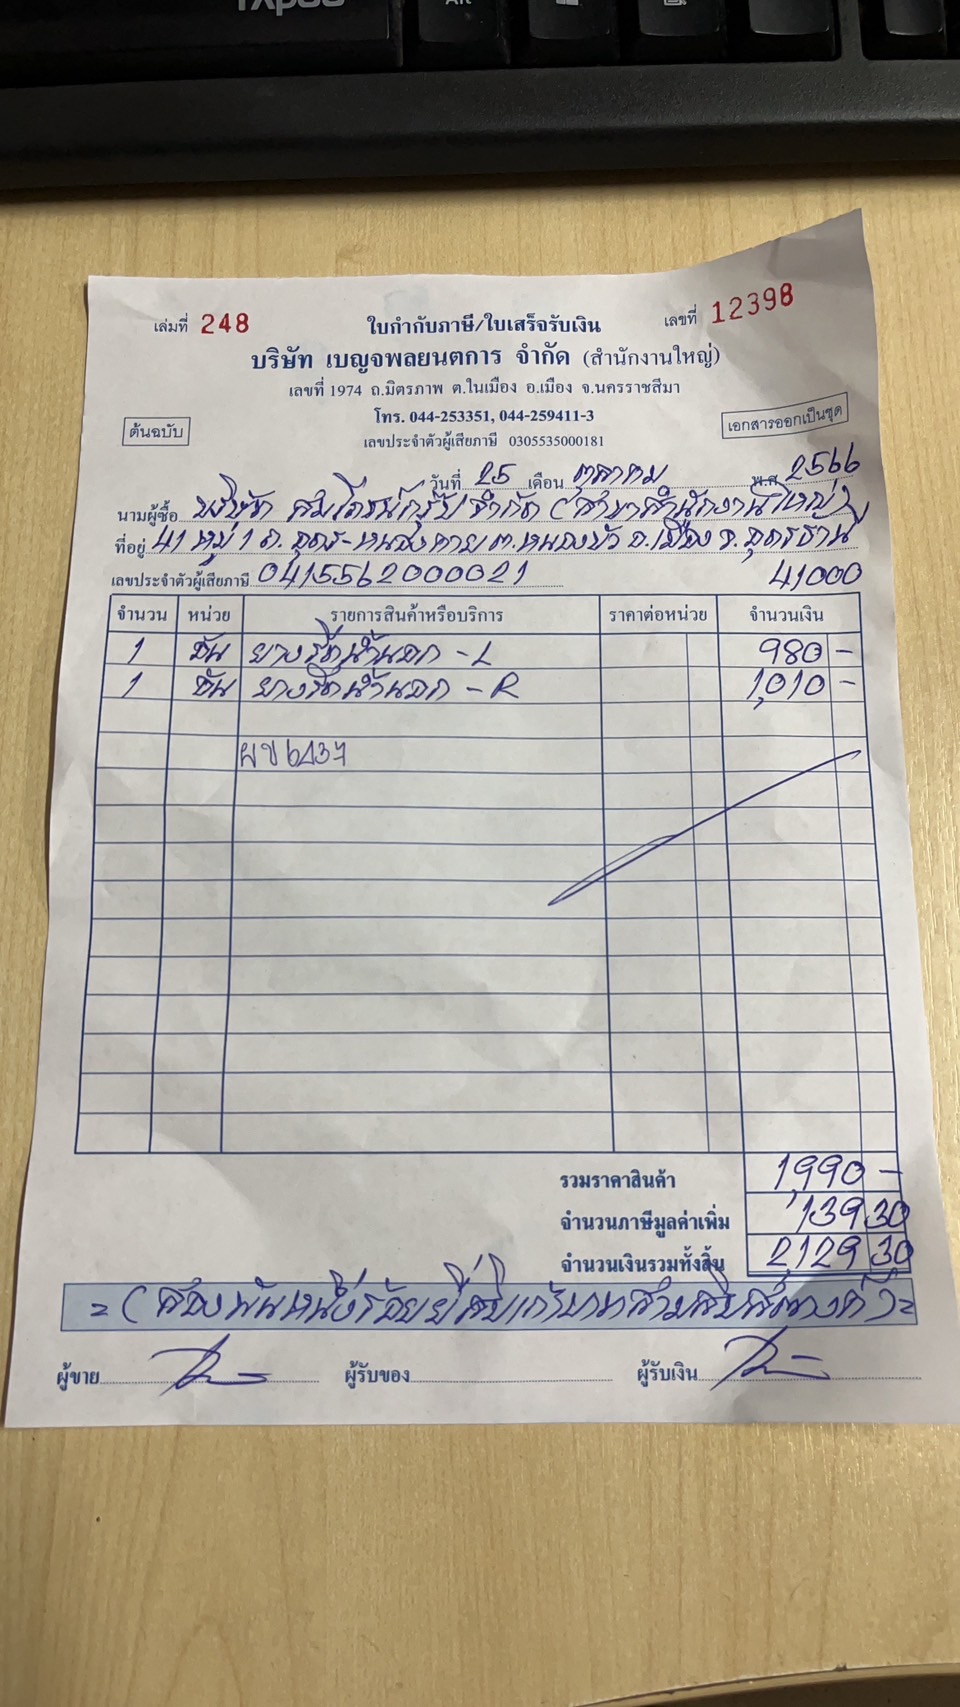 Alt
เล่มที่ 248 ใบกำกับภาษี/ใบเสร็จรับเงิน เลขที่ 12398
บริษัท เบญจพลยนตการ จำกัด (สำนักงานใหญ่)
เลขที่ 1974 ถ.มิตรภาพ ต.ในเมือง อ.เมือง จ.นครราชสีมา
โทร. 044-253351, 044-259411-3
ต้นฉบับ เอกสารออกเป็นชุด
เลขประจำตัวผู้เสียภาษี 0305535000181
วันที่ 25 เดือน ตุลาคม พ.ศ. 2566
นามผู้ซื้อ บริษัท กรุ๊ป จำกัด (สาขาสำนักงานใหญ่)
ที่อยู่ 41 หมู่ 1 ถ.อุดร-หนองคาย ต.หนองบัว อ.เมือง จ.อุดรธานี
เลขประจำตัวผู้เสียภาษี 0415562000021 41000
จำนวน หน่วย รายการสินค้าหรือบริการ ราคาต่อหน่วย จำนวนเงิน
1 อัน ยางรีดน้ำนอก - L 980 -
1 อัน ยางรีดน้ำนอก - R 1,010 -
ผข 6437
รวมราคาสินค้า 1,990 -
จำนวนภาษีมูลค่าเพิ่ม 139 30
จำนวนเงินรวมทั้งสิ้น 2,129 30
= (สองพันหนึ่งร้อยยี่สิบเก้าบาทสามสิบสตางค์) =
ผู้ขาย ผู้รับของ ผู้รับเงิน